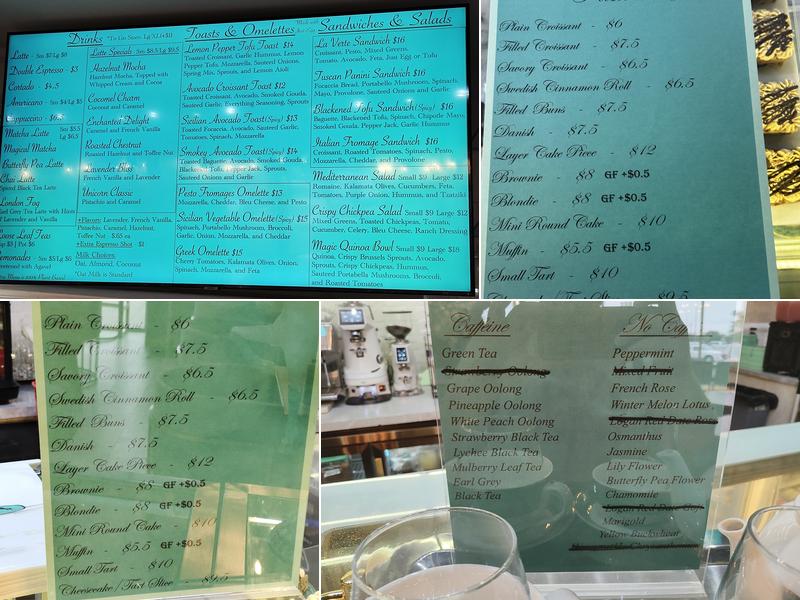 Drinks
Latte - Sm $7/Lg $8
Double Espresso - $3
Cortado - $4.5
Americano - Sm $4/Lg $5
Matcha Latte Sm $5.5
Lg $6.5
Magical Matcha
Butterfly Pea Latte
Chai Latte
Spiced Black Tea Latte
London Fog
Earl Grey Tea Latte with Hints
of Lavender and Vanilla
Loose Leaf Teas
Cup $3 | Pot $6
Lemonades - Sm $5/Lg $6
Sweetened with Agave
Latte Specials - Sm $8.5/Lg $9.5
Hazelnut Mocha
Hazelnut Mocha, Topped with
Whipped Cream and Cocoa
Coconut Charm
Coconut and Caramel
Enchanted Delight
Caramel and French Vanilla
Roasted Chestnut
Roasted Hazelnut and Toffee Nut
Lavender Bliss
French Vanilla and Lavender
Unicorn Classic
Pistachio and Caramel
+Flavors: Lavender, French Vanilla,
Pistachio, Caramel, Hazelnut,
Toffee Nut - $.65 ea
+Extra Espresso Shot - $1
Milk Choices:
Oat, Almond, Coconut
*Oat Milk is Standard
Toasts & Omelettes
Lemon Pepper Tofu Toast $14
Toasted Croissant, Garlic Hummus, Lemon
Pepper Tofu, Mozzarella, Sauteed Onions,
Spring Mix, Sprouts, and Lemon Aioli
Avocado Croissant Toast $12
Toasted Croissant, Avocado, Smoked Gouda,
Sauteed Garlic, Everything Seasoning, Sprouts
Sicilian Avocado Toast (Spicy) $13
Toasted Focaccia, Avocado, Sauteed Garlic,
Tomatoes, Spinach, Mozzarella
Smokey Avocado Toast (Spicy) $14
Toasted Baguette, Avocado, Smoked Gouda,
Blackened Tofu, Pepper Jack, Sprouts,
Sauteed Onions and Garlic
Pesto Fromages Omelette $13
Mozzarella, Cheddar, Bleu Cheese, and Pesto
Sicilian Vegetable Omelette (Spicy) $15
Spinach, Portobello Mushroom, Broccoli,
Garlic, Onion, Mozzarella, and Cheddar
Greek Omelette $15
Cherry Tomatoes, Kalamata Olives, Onion,
Spinach, Mozzarella, and Feta
Sandwiches & Salads
La Verte Sandwich $16
Croissant, Pesto, Mixed Greens,
Tomato, Avocado, Feta, Just Egg or Tofu
Tuscan Panini Sandwich $16
Foccacia Bread, Portabello Mushrooms, Spinach,
Mayo, Provolone, Sauteed Onions and Garlic
Blackened Tofu Sandwich (Spicy) $16
Baguette, Blackened Tofu, Spinach, Chipotle Mayo,
Smoked Gouda, Pepper Jack, Garlic Hummus
Italian Fromage Sandwich $16
Croissant, Roasted Tomatoes, Spinach, Pesto,
Mozzarella, Cheddar, and Provolone
Mediterranean Salad Small $9 Large $12
Romaine, Kalamata Olives, Cucumbers, Feta,
Tomatoes, Purple Onion, Hummus, and Tzatziki
Crispy Chickpea Salad Small $9 Large $12
Mixed Greens, Toasted Chickpeas, Tomato,
Cucumber, Celery, Bleu Cheese, Ranch Dressing
Magic Quinoa Bowl Small $9 Large $18
Quinoa, Crispy Brussels Sprouts, Avocado,
Sprouts, Crispy Chickpeas, Hummus,
Sauteed Portabello Mushrooms, Broccoli,
and Roasted Tomatoes
Plain Croissant - $6
Filled Croissant - $7.5
Savory Croissant - $6.5
Swedish Cinnamon Roll - $6.5
Filled Buns - $7.5
Danish - $7.5
Layer Cake Piece - $12
Brownie - $8 GF +$0.5
Blondie - $8 GF +$0.5
Mini Round Cake - $10
Muffin - $5.5 GF +$0.5
Small Tart - $10
Plain Croissant - $6
Filled Croissant - $7.5
Savory Croissant - $6.5
Swedish Cinnamon Roll - $6.5
Filled Buns - $7.5
Danish - $7.5
Layer Cake Piece - $12
Brownie - $8 GF +$0.5
Blondie - $8 GF +$0.5
Mini Round Cake - $10
Muffin - $5.5 GF +$0.5
Small Tart - $10
Cheesecake/Tart Slice - $9.5
Caffeine
Green Tea
Strawberry Oolong
Grape Oolong
Pineapple Oolong
White Peach Oolong
Strawberry Black Tea
Lychee Black Tea
Mulberry Leaf Tea
Earl Grey
Black Tea
No Caf
Peppermint
Mixed Fruit
French Rose
Winter Melon Lotus
Logan Red Date Rose
Osmanthus
Jasmine
Lily Flower
Butterfly Pea Flower
Chamomile
Logan Red Date Goji
Marigold
Yellow Buckwheat